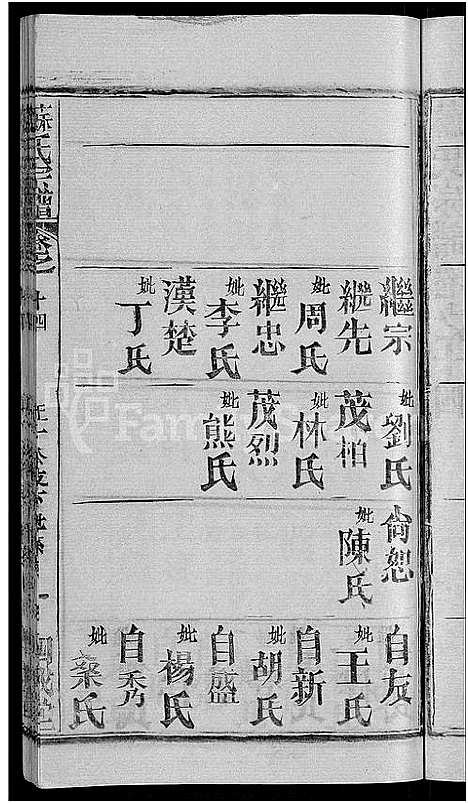 繼宗
繼先
妣周氏
繼忠
妣李氏
漢楚
妣丁氏
妣劉氏
茂柏
妣林氏
茂烈
妣熊氏
尙恕
妣陳氏
自友
妣王氏
自新
妣胡氏
自盛
妣楊氏
自秀
妣秦氏
蘇氏宗譜
卷之
十四